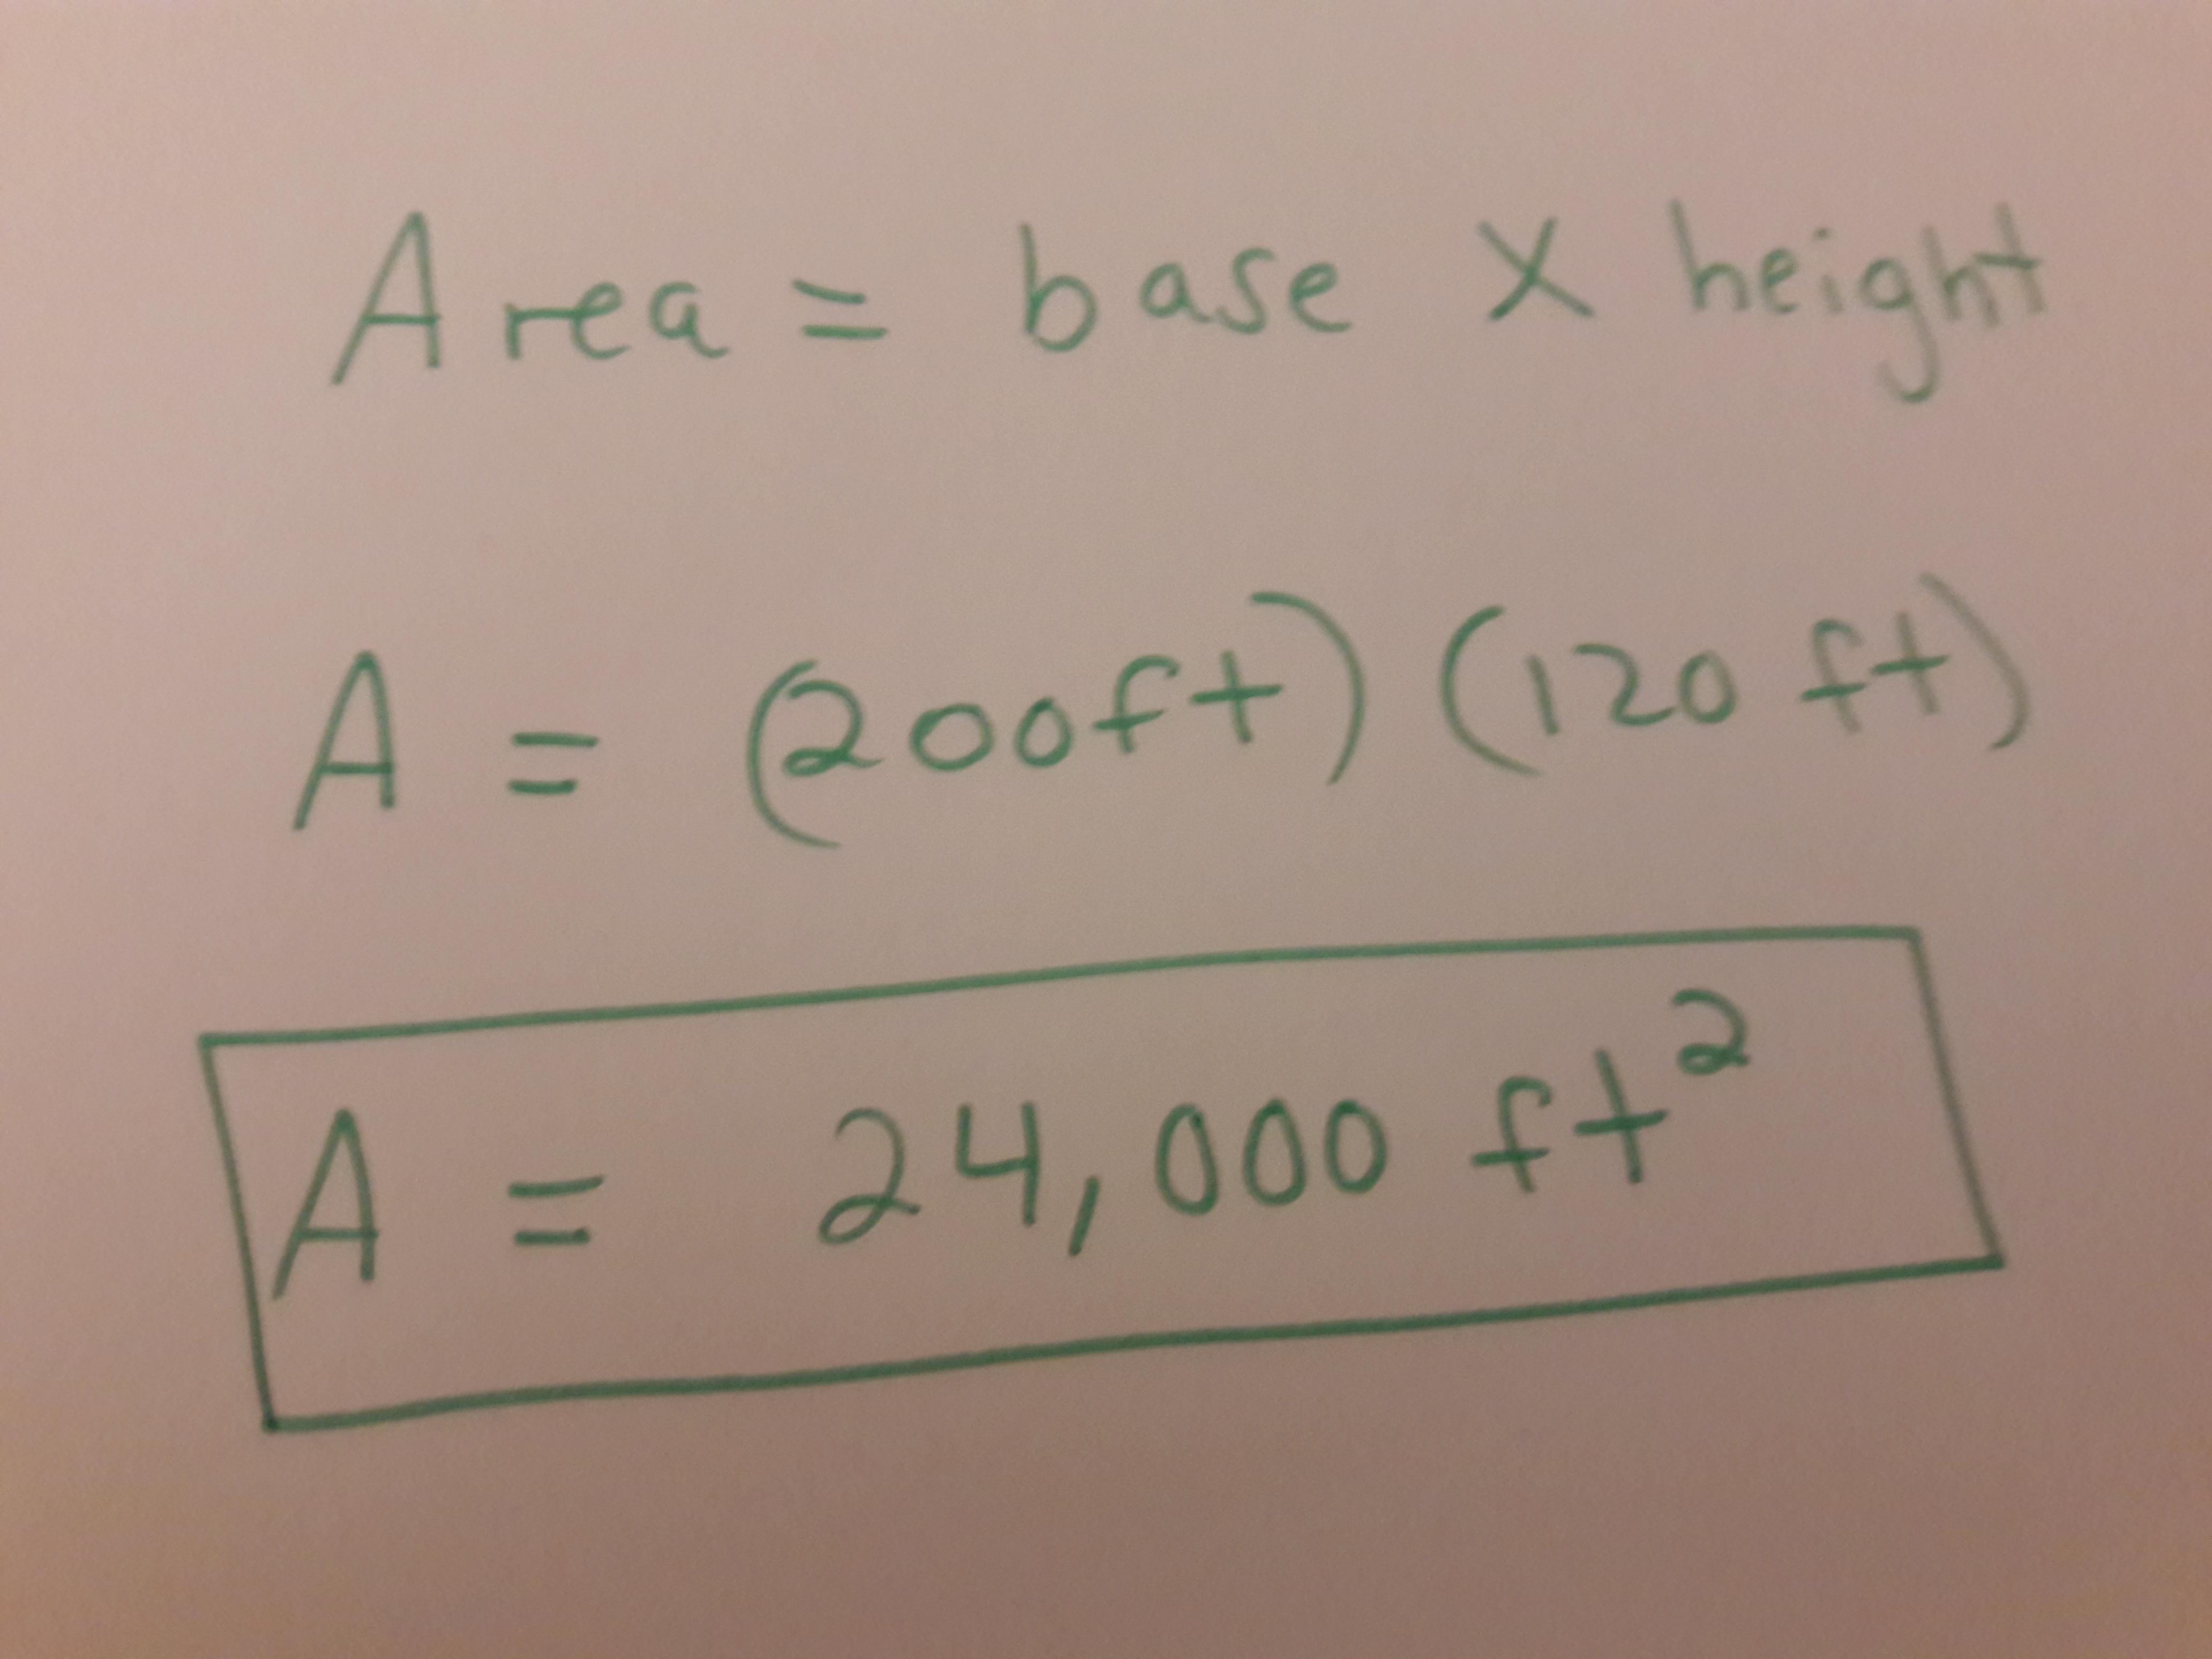 Area = base x height
A = (200ft) (120 ft)
A = 24,000 ft²